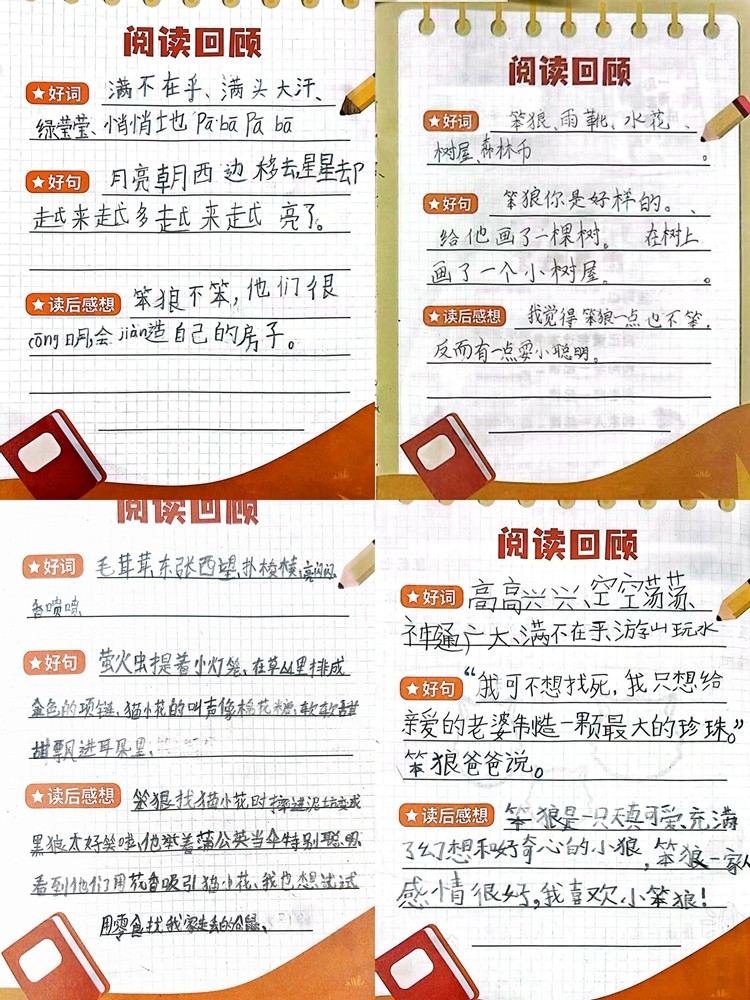 阅读回顾
★好词 满不在乎、满头大汗、
绿莹莹、悄悄地 Pā bā Pā bā
★好句 月亮朝西边移去,星星去
越来越多越来越亮了。
★读后感想 笨狼不笨,他们很
cōng明,会jiàn造自己的房子。
阅读回顾
★好词 笨狼、雨靴、水花、
树屋、森林币。
★好句 笨狼你是好样的。、
给他画了一棵树。 在树上
画了一个小树屋。。
★读后感想 我觉得笨狼一点也不笨,
反而有一点耍小聪明。
阅读回顾
★好词 毛茸茸、东张西望、扑棱棱、亮闪闪、
香喷喷、
★好句 萤火虫提着小灯笼,在草丛里排成
金色的项链,猫小花的叫声像棉花糖,软软甜
甜飘进耳朵里、
★读后感想 笨狼找猫小花时摔进泥坑变成
黑狼太好笑啦,他举着蒲公英当伞特别聪明
看到他们用花香吸引猫小花,我也想试试
用零食找我家走丢的仓鼠、
阅读回顾
★好词 高高兴兴、空空荡荡、
神通广大、满不在乎、游山玩水
★好句 “我可不想找死,我只想给
亲爱的老婆制造一颗最大的珍珠。”
笨狼爸爸说。
★读后感想 笨狼是一只天真可爱、充满
了幻想和好奇心的小狼,笨狼一家人
感情很好,我喜欢小笨狼!